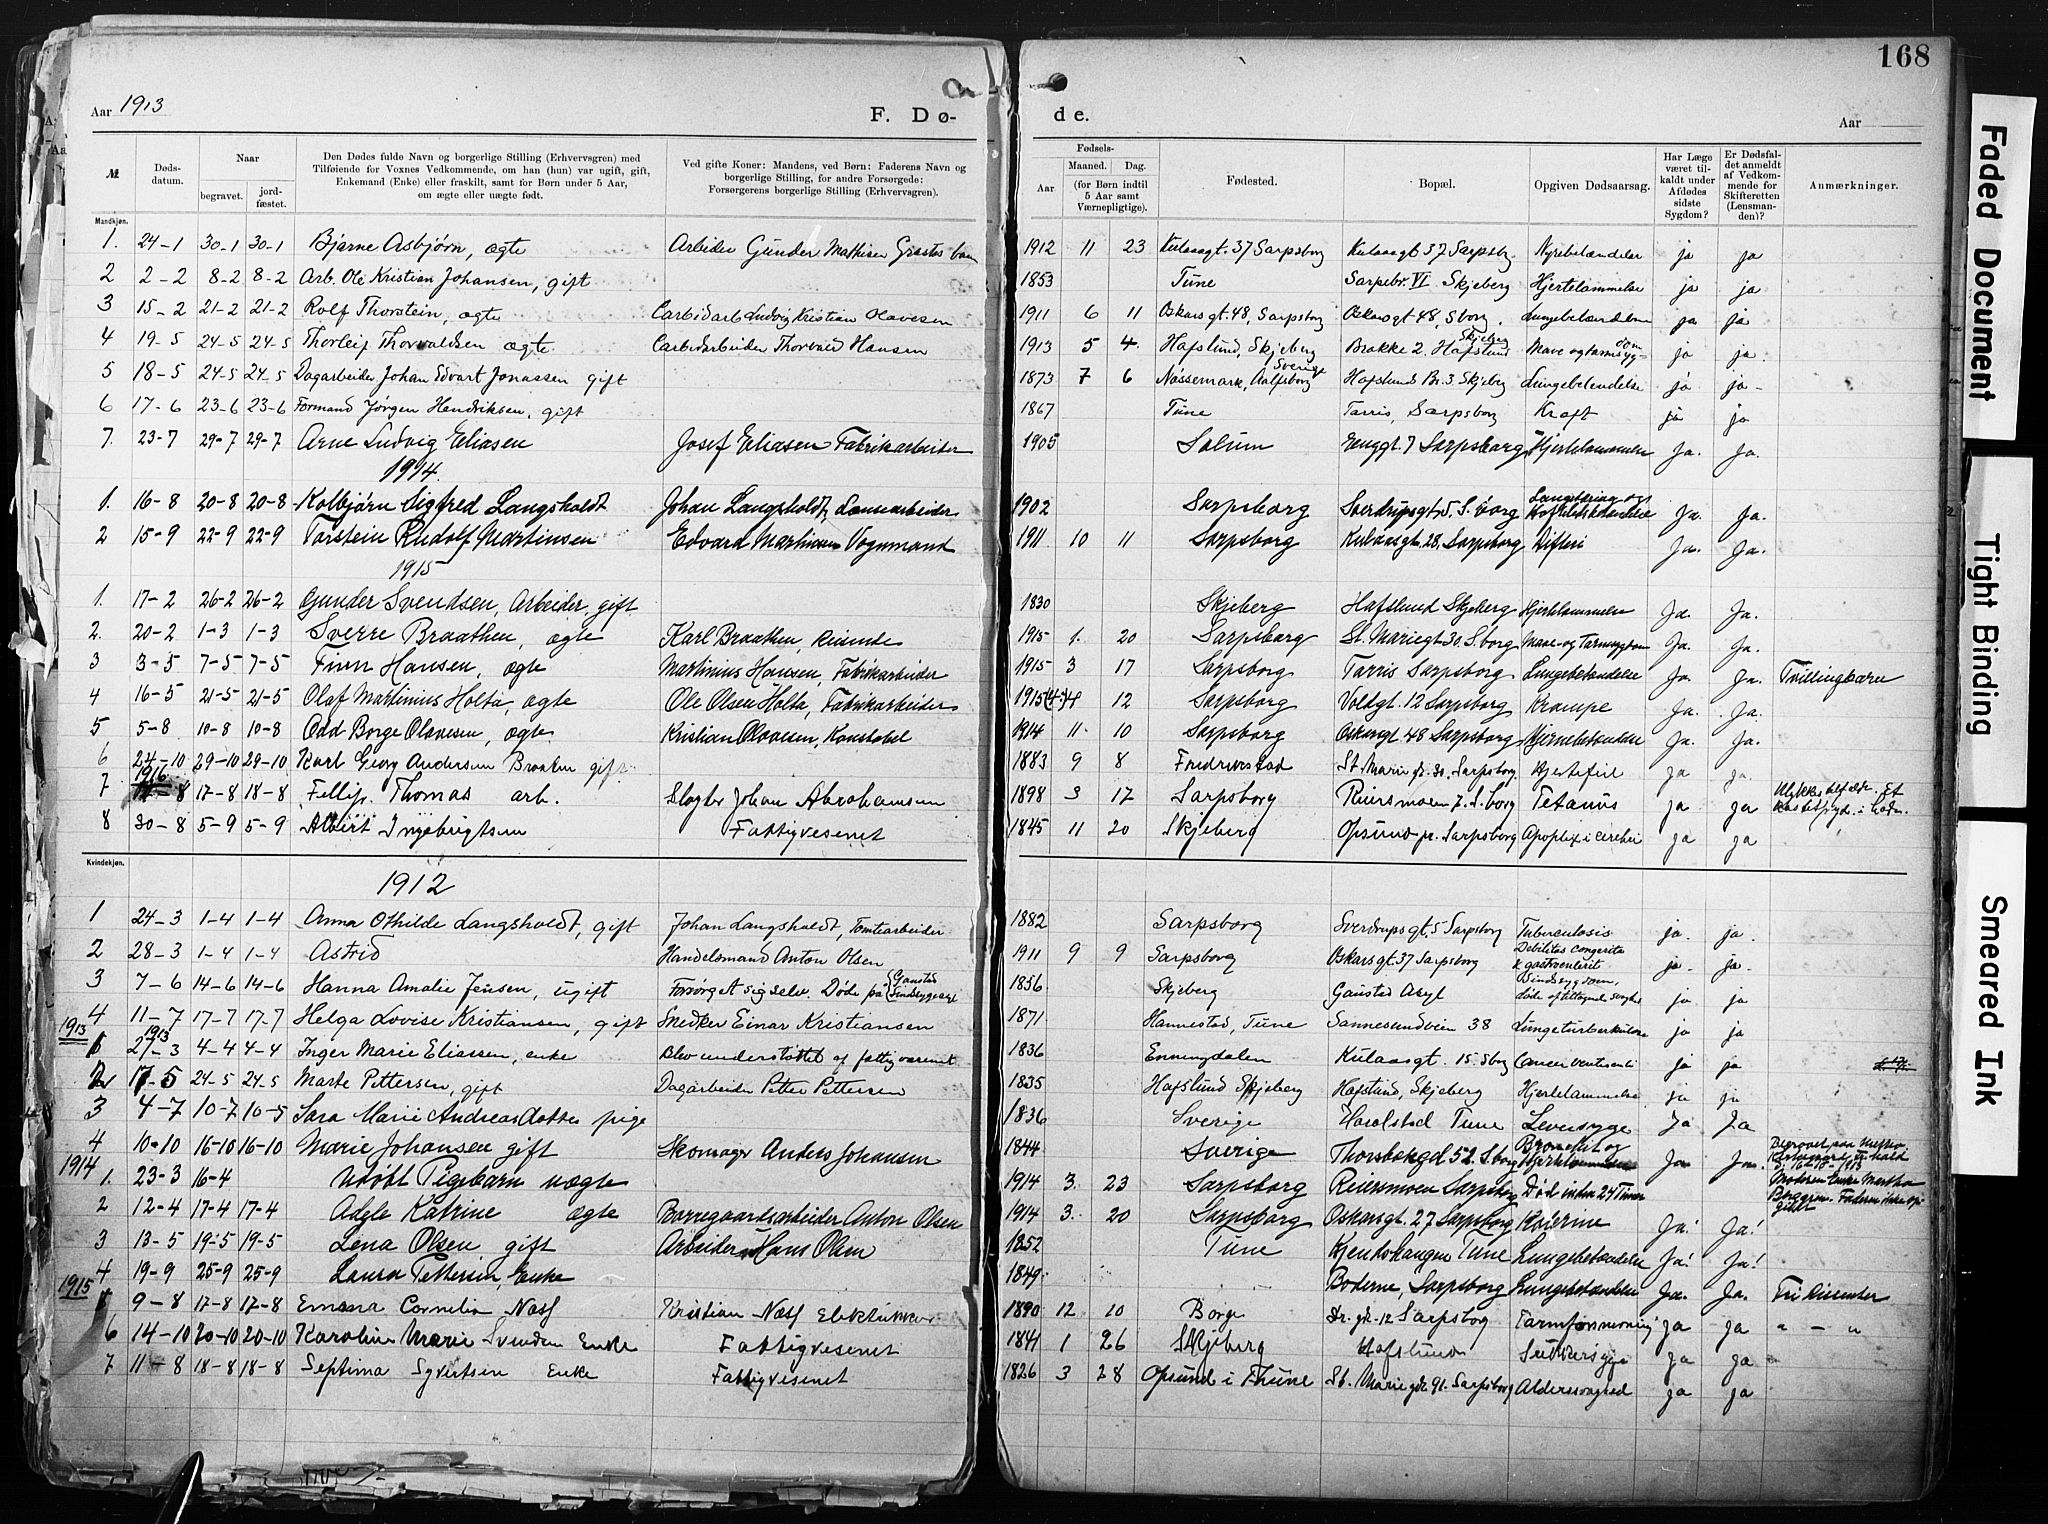 168
Aar 1913
F. Dø-
de.
Aar
№
Døds-
datum.
Naar
begravet.
jord-
fæstet.
Den Dødes fulde Navn og borgerlige Stilling (Erhvervsgren) med
Tilføiende for Voxnes Vedkommende, om han (hun) var ugift, gift,
Enkemand (Enke) eller fraskilt, samt for Børn under 5 Aar,
om ægte eller uægte født.
Ved gifte Koner: Mandens, ved Børn: Faderens Navn og
borgerlige Stilling, for andre Forsørgede:
Forsørgerens borgerlige Stilling (Erhvervsgren).
Fødsels-
Aar
Maaned. Dag.
(for Børn indtil
5 Aar samt
Værnepligtige).
Fødested.
Bopæl.
Opgiven Dødsaarsag.
Har Læge
været til-
kaldt under
Afdødes
sidste
Sygdom?
Er Dødsfal-
det anmeldt
af Vedkom-
mende for
Skifteretten
(Lensman-
den)?
Anmærkninger.
Mandkjøn.
1. 24-1 30-1 30-1 Bjarne Asbjørn, ægte Arbeider Gunder Mathisen 1912 11 23 Kulaasgt. 37 Sarpsborg Kulaasgt 37 Sarpsbg. ja ja
2 2-2 8-2 8-2 Arb. Ole Kristian Johansen, gift 1853 Tune Sarpsbr. VI Skjeberg Hjertelammelse ja ja
3 15-2 21-2 21-2 Rolf Thorstein, ægte Carbidarb Ludvig Kristian Olavesen 1911 6 11 Oskarsgt. 48, Sarpsborg Oskarsgt 48, Sborg. ja ja
4 19-5 24-5 24-5 Thorleif Thorvaldsen ægte Carbidarbeider Thorvald Hansen 1913 5 4 Hafslund, Skjeberg Brakke 2. Hafslund Skjeberg Mave og tarmsygdom ja ja
5 18-5 24-5 24-5 Dagarbeider Johan Edvart Jonassen gift 1873 7 6 Nøssemark, Sverige Hafslund Br. 3 Skjeberg Lungebetendelse ja ja
6 17-6 23-6 23-6 Formand Jørgen Hendriksen, gift 1867 Tune Tarris, Sarpsborg Kræft ja ja
7. 23-7 29-7 29-7 Arne Ludvig Eliasen Josef Eliasen Fabrikarbeider 1905 Solum Enggt. 7 Sarpsborg Hjertelammelse Ja. Ja.
1914.
1. 16-8 20-8 20-8 Kolbjørn Sigfred Langsholdt Johan Langsholdt, 1902 Sarpsborg Sverdrupsgt 5. S.borg Ja. Ja.
2 15-9 22-9 22-9 Torstein Rudolf Martinsen Edvard Martinsen Vognmand 1911 10 11 Sarpsborg Kulaasgt. 28, Sarpsborg Difteri Ja. Ja.
1915
1. 17-2 26-2 26-2 Gunder Svendsen, Arbeider, gift 1830 Skjeberg Hafslund Skjeberg Hjertelammelse Ja. Ja.
2. 20-2 1-3 1-3 Sverre Braathen, ægte Karl Braathen, 1915 1. 20 Sarpsborg St. Mariegt. 30. S.borg Mave- og Tarmsygdom Ja. Ja.
3 3-5 7-5 7-5 Finn Hansen, ægte Martinius Hansen, Fabrikarbeider 1915 3 17 Sarpsborg Tarris Sarpsborg Lungebetændelse Ja Ja. Tvillingbarn
4 16-5 21-5 21-5 Olaf Martinius Holta, ægte Ole Olsen Holta, Fabrikarbeider 1915 4 12 Sarpsborg Voldgt. 12 Sarpsborg Krampe Ja. Ja.
5 5-8 10-8 10-8 Odd Borge Olavesen, ægte Kristian Olavesen, Konstabel 1914 11 10 Sarpsborg Oskarsgt 48 Sarpsborg Hjernebetændelse Ja. Ja.
6 24-10 29-10 29-10 Karl Georg Andersen Braaten gift 1883 9 8 Fredrikstad St. Marie gt. 30, Sarpsborg. Hjertefeil ja ja
1916
7 14-8 17-8 18-8 Fillip. Thomas arb. Slagter Johan Abrahamsen 1898 3 17 Sarpsborg Reiersmoen 7. S.borg Tetanus ja ja
8 30-8 5-9 5-9 Albert Ingebrigtsen Fattigvesenet 1845 11 20 Skjeberg Opsund pr. Sarpsborg Apoplexi cerebri ja ja
Kvindekjøn.
1912
1 24-3 1-4 1-4 Anna Othilde Langsholdt, gift Johan Langsholdt, Tomtearbeider 1882 Sarpsborg Sverdrupsgt. 5 Sarpsborg Tuberculosis ja. ja.
2 28-3 1-4 1-4 Astrid Handelsmand Anton Olsen 1911 9 9 Sarpsborg Oskarsgt. 37 Sarpsborg Debilitas congenita & gastroenterit ja. ja.
3 7-6 14-6 14-6 Hanna Amalie Jensen, ugift Forsørget sig selv. Døde på Gaustad Sindssygeasyl 1856 Skjeberg Gaustad Asyl Sindssygdom, ja ja
4 11-7 17-7 17-7 Helga Lovise Kristiansen, gift Snedker Einar Kristiansen 1871 Hannestad, Tune Sannesundveien 38 Lungetuberkulose ja ja
1913
1 27-3 1913 4-4 4-4 Inger Marie Eliassen, enke Blev understøttet af fattigvæsenet 1836 Enningdalen Kulaasgt. 15 Sbg Cancer ventriculi ja ja
2 17-5 24-5 24-5 Marte Pettersen, gift Dagarbeider Petter Pettersen 1835 Hafslund Skjeberg Hafslund, Skjeberg Hjertelammelse ja ja
3 4-7 10-7 10-5 Sara Marie Andreasdotter pige 1836 Sverige Harolstad Tune Leversyge Ja Ja
4 10-10 16-10 16-10 Marie Johansen gift Skomager Anders Johansen 1844 Sverige Bronchit og Hjertelammelse Ja Ja.
1914
1. 23-3 16-4 Udøbt Pigebarn uægte 1914 3. 23 Sarpsborg Reiersmoen Sarpsborg Død inden 24 Timer Moderen Enke Martha Borgersen. Faderen ikke opgivet
2 12-4 17-4 17-4 Adele Katrine ægte Borregaardsarbeider Anton Olsen 1914 3. 20 Sarpsborg Oskarsgt. 27 Sarpsborg Ja! Ja!
3 13-5 19-5 19-5 Lena Olsen, gift Arbeider Hans Olsen 1852 Tune Tune Lungebetændelse Ja! Ja!
4 19-9 25-9 25-9 Laura Pettersen, Enke 1849. Boderne, Sarpsborg Lungebetændelse Ja. Ja. Fri Disenter
1915
5 9-8 17-8 17-8 Emma Cornelia Næss Kristian Næss 1890 12 10 Borge Dr. gt. 12 Sarpsborg ja ja " - "
6 14-10 20-10 20-10 Karoline Marie Svendsen Enke Fattigvesenet 1841 1 26 Skjeberg Hafslund Sukkersyge ja ja
7 11-8 18-8 18-8 Septima Syvertsen Enke Fattigvesenet 1826 3 28 Opsund i Thune St. Marie gt. 91. Sarpsborg Alderssvaghed ja ja
Faded Document
Tight Binding
Smeared Ink